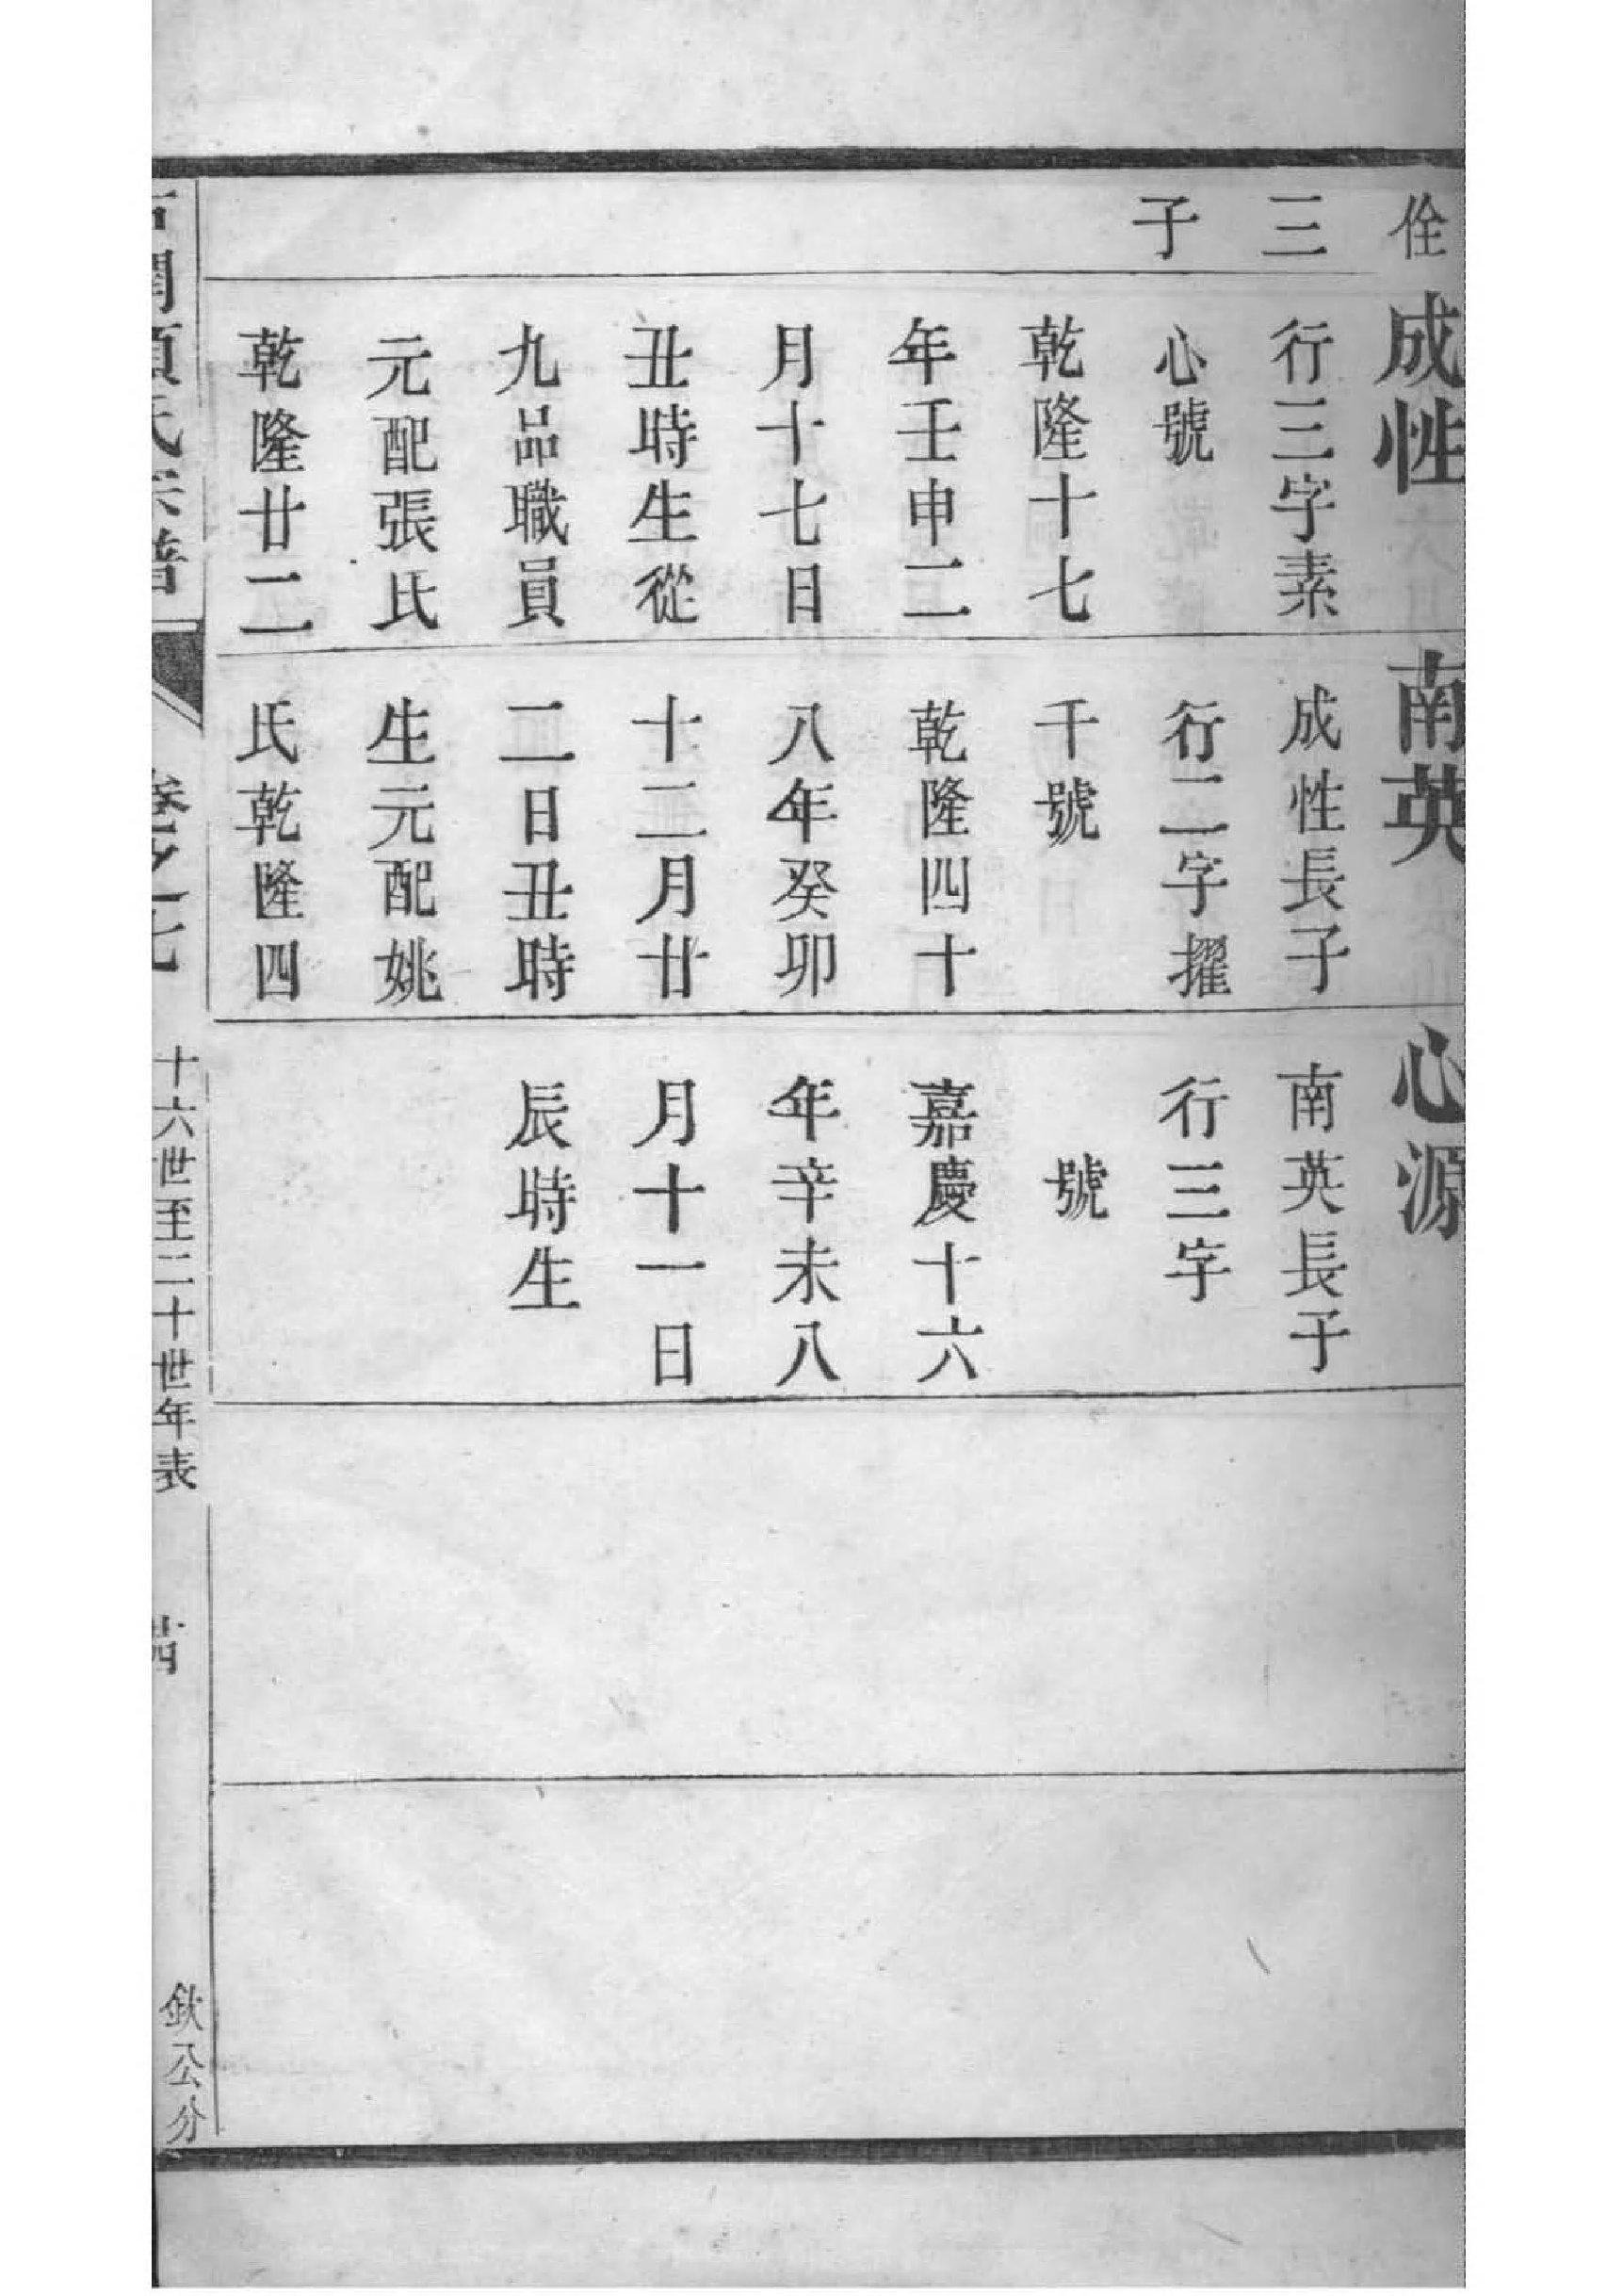 佺
三
子
成性
行三字素
心號
乾隆十七
年壬申二
月十七日
丑時生從
九品職員
元配張氏
乾隆廿二
南英
成性長子
行二字擢
千號
乾隆四十
八年癸卯
十二月廿
二日丑時
生元配姚
氏乾隆四
心源
南英長子
行三字
號
嘉慶十六
年辛未八
月十一日
辰時生
氏宗譜
卷之七
十六世至二十世年表
欽公分